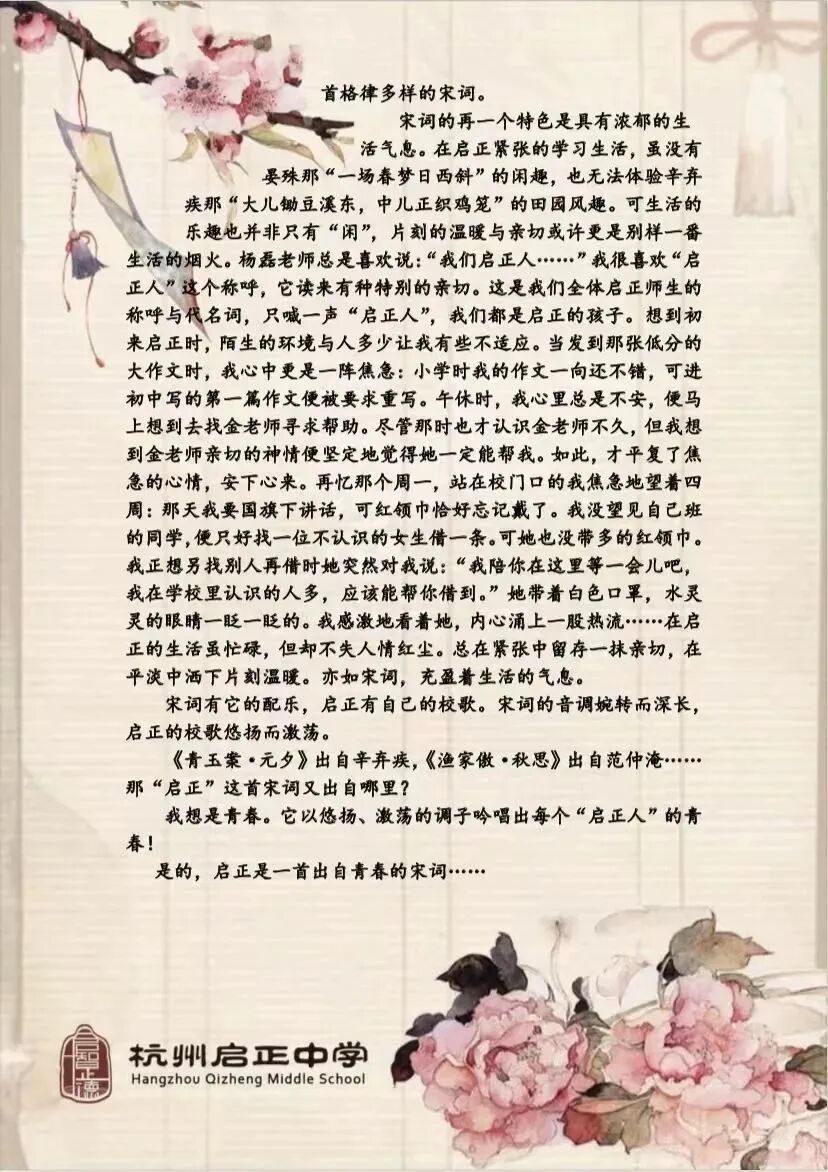 首格律多样的宋词。
宋词的再一个特色是具有浓郁的生
活气息。在启正紧张的学习生活，虽没有
晏殊那“一场春梦日西斜”的闲趣，也无法体验辛弃
疾那“大儿锄豆溪东，中儿正织鸡笼”的田园风趣。可生活的
乐趣也并非只有“闲”，片刻的温暖与亲切或许更是别样一番
生活的烟火。杨磊老师总是喜欢说：“我们启正人……”我很喜欢“启
正人”这个称呼，它读来有种特别的亲切。这是我们全体启正师生的
称呼与代名词，只喊一声“启正人”，我们都是启正的孩子。想到初
来启正时，陌生的环境与人多少让我有些不适应。当发到那张低分的
大作文时，我心中更是一阵焦急：小学时我的作文一向还不错，可进
初中写的第一篇作文便被要求重写。午休时，我心里总是不安，便马
上想到去找金老师寻求帮助。尽管那时也才认识金老师不久，但我想
到金老师亲切的神情便坚定地觉得她一定能帮我。如此，才平复了焦
急的心情，安下心来。再忆那个周一，站在校门口的我焦急地望着四
周：那天我要国旗下讲话，可红领巾恰好忘记戴了。我没望见自己班
的同学，便只好找一位不认识的女生借一条。可她也没带多的红领巾。
我正想另找别人再借时她突然对我说：“我陪你在这里等一会儿吧，
我在学校里认识的人多，应该能帮你借到。”她带着白色口罩，水灵
灵的眼睛一眨一眨的。我感激地看着她，内心涌上一股热流……在启
正的生活虽忙碌，但却不失人情红尘。总在紧张中留存一抹亲切，在
平淡中洒下片刻温暖。亦如宋词，充盈着生活的气息。
宋词有它的配乐，启正有自己的校歌。宋词的音调婉转而深长，
启正的校歌悠扬而激荡。
《青玉案·元夕》出自辛弃疾，《渔家傲·秋思》出自范仲淹……
那“启正”这首宋词又出自哪里？
我想是青春。它以悠扬、激荡的调子吟唱出每个“启正人”的青
春！
是的，启正是一首出自青春的宋词……
启智正德
杭州启正中学
Hangzhou Qizheng Middle School